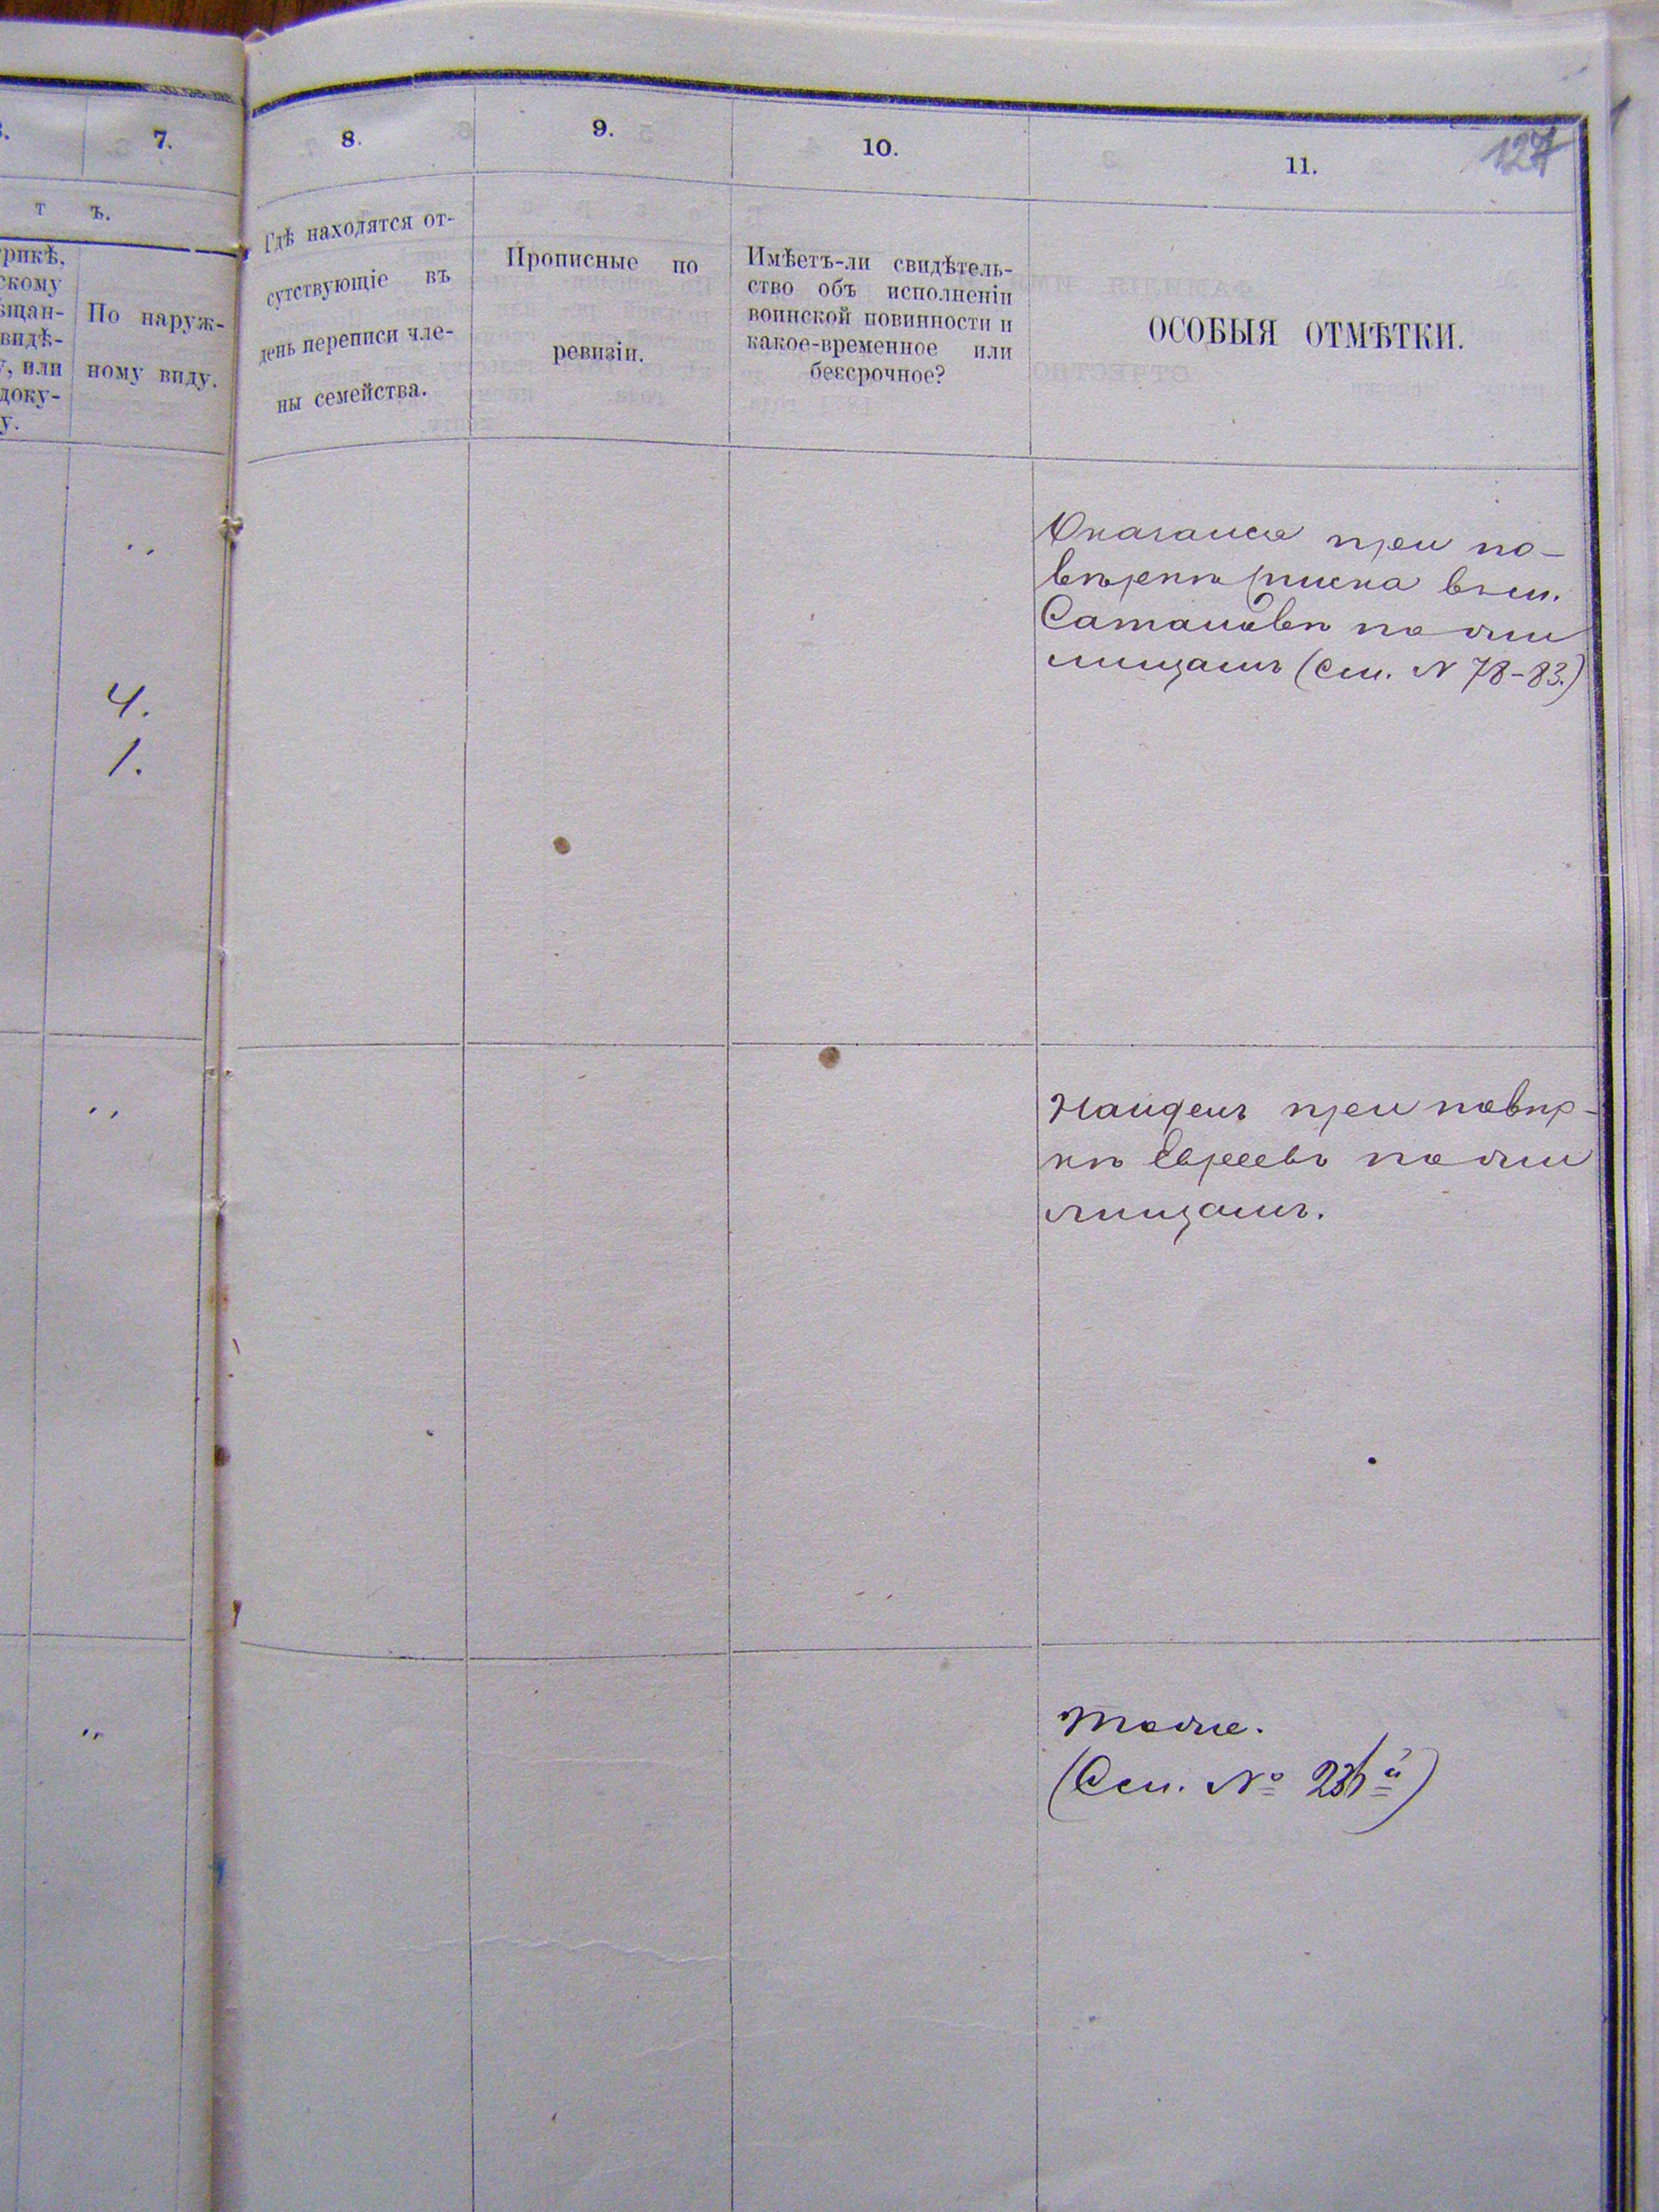 7.
8.
9.
10.
11.
127
т ъ.
рикѣ,
скому
ѣщан-
видѣ-
у, или
доку-
у.
По наруж-
ному виду.
Гдѣ находятся от-
сутствующіе въ
день переписи чле-
ны семейства.
Прописные по
ревизіи.
Имѣетъ-ли свидѣтель-
ство объ исполненіи
воинской повинности и
какое-временное или
безсрочное?
ОСОБЫЯ ОТМѢТКИ.
„
4.
1.
Оказался при по-
вѣркѣ списка въ м.
Сатановѣ на жи
лищамъ (См. N 78-83.)
„
Найденъ при повѣр-
кѣ Евреевъ по жи
лищамъ.
„
Тоже.
(См. №)